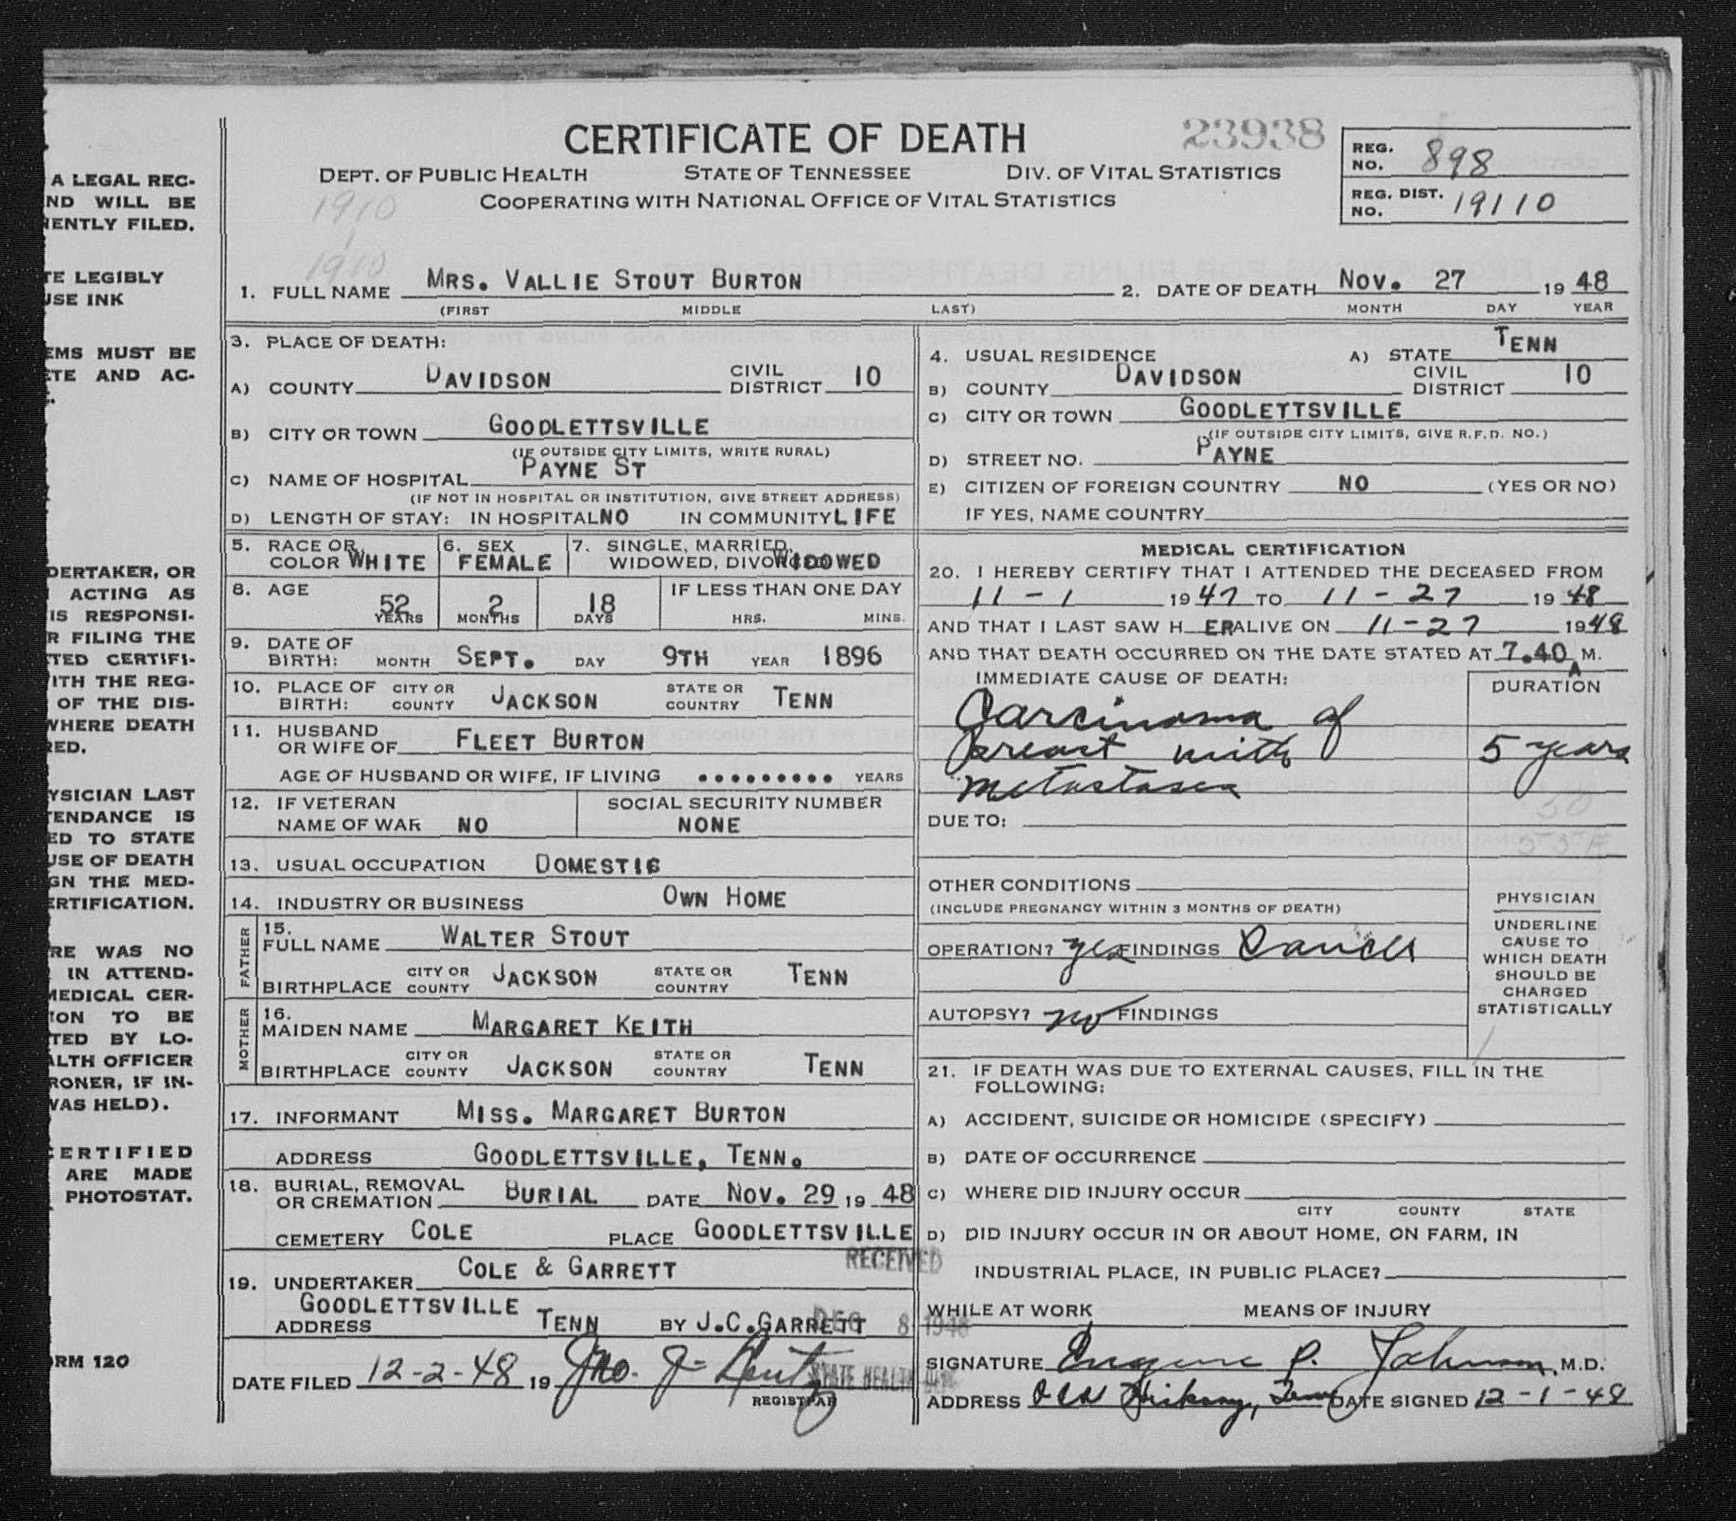 CERTIFICATE OF DEATH
23938
REG. NO. 898
DEPT. OF PUBLIC HEALTH STATE OF TENNESSEE DIV. OF VITAL STATISTICS
REG. DIST. NO. 19110
1910
COOPERATING WITH NATIONAL OFFICE OF VITAL STATISTICS
1910
1. FULL NAME MRS. VALLIE STOUT BURTON 2. DATE OF DEATH NOV. 27 19 48
(FIRST MIDDLE LAST) MONTH DAY YEAR
3. PLACE OF DEATH:
A) COUNTY DAVIDSON CIVIL DISTRICT 10
B) CITY OR TOWN GOODLETTSVILLE
(IF OUTSIDE CITY LIMITS, WRITE RURAL)
C) NAME OF HOSPITAL PAYNE ST
(IF NOT IN HOSPITAL OR INSTITUTION, GIVE STREET ADDRESS)
D) LENGTH OF STAY: IN HOSPITAL NO IN COMMUNITY LIFE
4. USUAL RESIDENCE A) STATE TENN
B) COUNTY DAVIDSON CIVIL DISTRICT 10
C) CITY OR TOWN GOODLETTSVILLE
(IF OUTSIDE CITY LIMITS, GIVE R.F.D. NO.)
D) STREET NO. PAYNE
E) CITIZEN OF FOREIGN COUNTRY NO (YES OR NO)
IF YES, NAME COUNTRY
5. RACE OR COLOR WHITE 6. SEX FEMALE 7. SINGLE, MARRIED, WIDOWED, DIVORCED WIDOWED
8. AGE 52 YEARS 2 MONTHS 18 DAYS IF LESS THAN ONE DAY HRS. MINS.
9. DATE OF BIRTH: MONTH SEPT. DAY 9TH YEAR 1896
10. PLACE OF BIRTH: CITY OR COUNTY JACKSON STATE OR COUNTRY TENN
11. HUSBAND OR WIFE OF FLEET BURTON
AGE OF HUSBAND OR WIFE, IF LIVING ......... YEARS
12. IF VETERAN NAME OF WAR NO SOCIAL SECURITY NUMBER NONE
13. USUAL OCCUPATION DOMESTIC
14. INDUSTRY OR BUSINESS OWN HOME
FATHER
15. FULL NAME WALTER STOUT
BIRTHPLACE CITY OR COUNTY JACKSON STATE OR COUNTRY TENN
MOTHER
16. MAIDEN NAME MARGARET KEITH
BIRTHPLACE CITY OR COUNTY JACKSON STATE OR COUNTRY TENN
17. INFORMANT MISS. MARGARET BURTON
ADDRESS GOODLETTSVILLE, TENN.
18. BURIAL, REMOVAL OR CREMATION BURIAL DATE NOV. 29 19 48
CEMETERY COLE PLACE GOODLETTSVILLE
19. UNDERTAKER COLE & GARRETT
ADDRESS GOODLETTSVILLE TENN BY J.C.GARRETT
RECEIVED
DEC 8 1948
STATE HEALTH DEPT.
DATE FILED 12-2-48 19 Jno. J. Lentz
REGISTRAR
MEDICAL CERTIFICATION
20. I HEREBY CERTIFY THAT I ATTENDED THE DECEASED FROM
11-1 19 47 TO 11-27 19 48
AND THAT I LAST SAW H ER ALIVE ON 11-27 19 48
AND THAT DEATH OCCURRED ON THE DATE STATED AT 7.40 A M.
IMMEDIATE CAUSE OF DEATH: DURATION
Carcinoma of
breast with 5 years
metastases
50
DUE TO:
OTHER CONDITIONS
(INCLUDE PREGNANCY WITHIN 3 MONTHS OF DEATH)
OPERATION? yes FINDINGS Cancer
AUTOPSY? no FINDINGS
PHYSICIAN
UNDERLINE
CAUSE TO
WHICH DEATH
SHOULD BE
CHARGED
STATISTICALLY
21. IF DEATH WAS DUE TO EXTERNAL CAUSES, FILL IN THE
FOLLOWING:
A) ACCIDENT, SUICIDE OR HOMICIDE (SPECIFY)
B) DATE OF OCCURRENCE
C) WHERE DID INJURY OCCUR
CITY COUNTY STATE
D) DID INJURY OCCUR IN OR ABOUT HOME, ON FARM, IN
INDUSTRIAL PLACE, IN PUBLIC PLACE?
WHILE AT WORK MEANS OF INJURY
SIGNATURE Eugene P. Johnson, M.D.
ADDRESS Old Hickory, Tenn DATE SIGNED 12-1-48
A LEGAL REC-
ND WILL BE
NENTLY FILED.
TE LEGIBLY
USE INK
EMS MUST BE
ETE AND AC-
DERTAKER, OR
ACTING AS
IS RESPONSI-
R FILING THE
TED CERTIFI-
ITH THE REG-
OF THE DIS-
WHERE DEATH
RED.
YSICIAN LAST
TENDANCE IS
ED TO STATE
USE OF DEATH
GN THE MED-
ERTIFICATION.
RE WAS NO
IN ATTEND-
MEDICAL CER-
ION TO BE
TED BY LO-
ALTH OFFICER
RONER, IF IN-
WAS HELD).
CERTIFIED
ARE MADE
PHOTOSTAT.
ORM 120